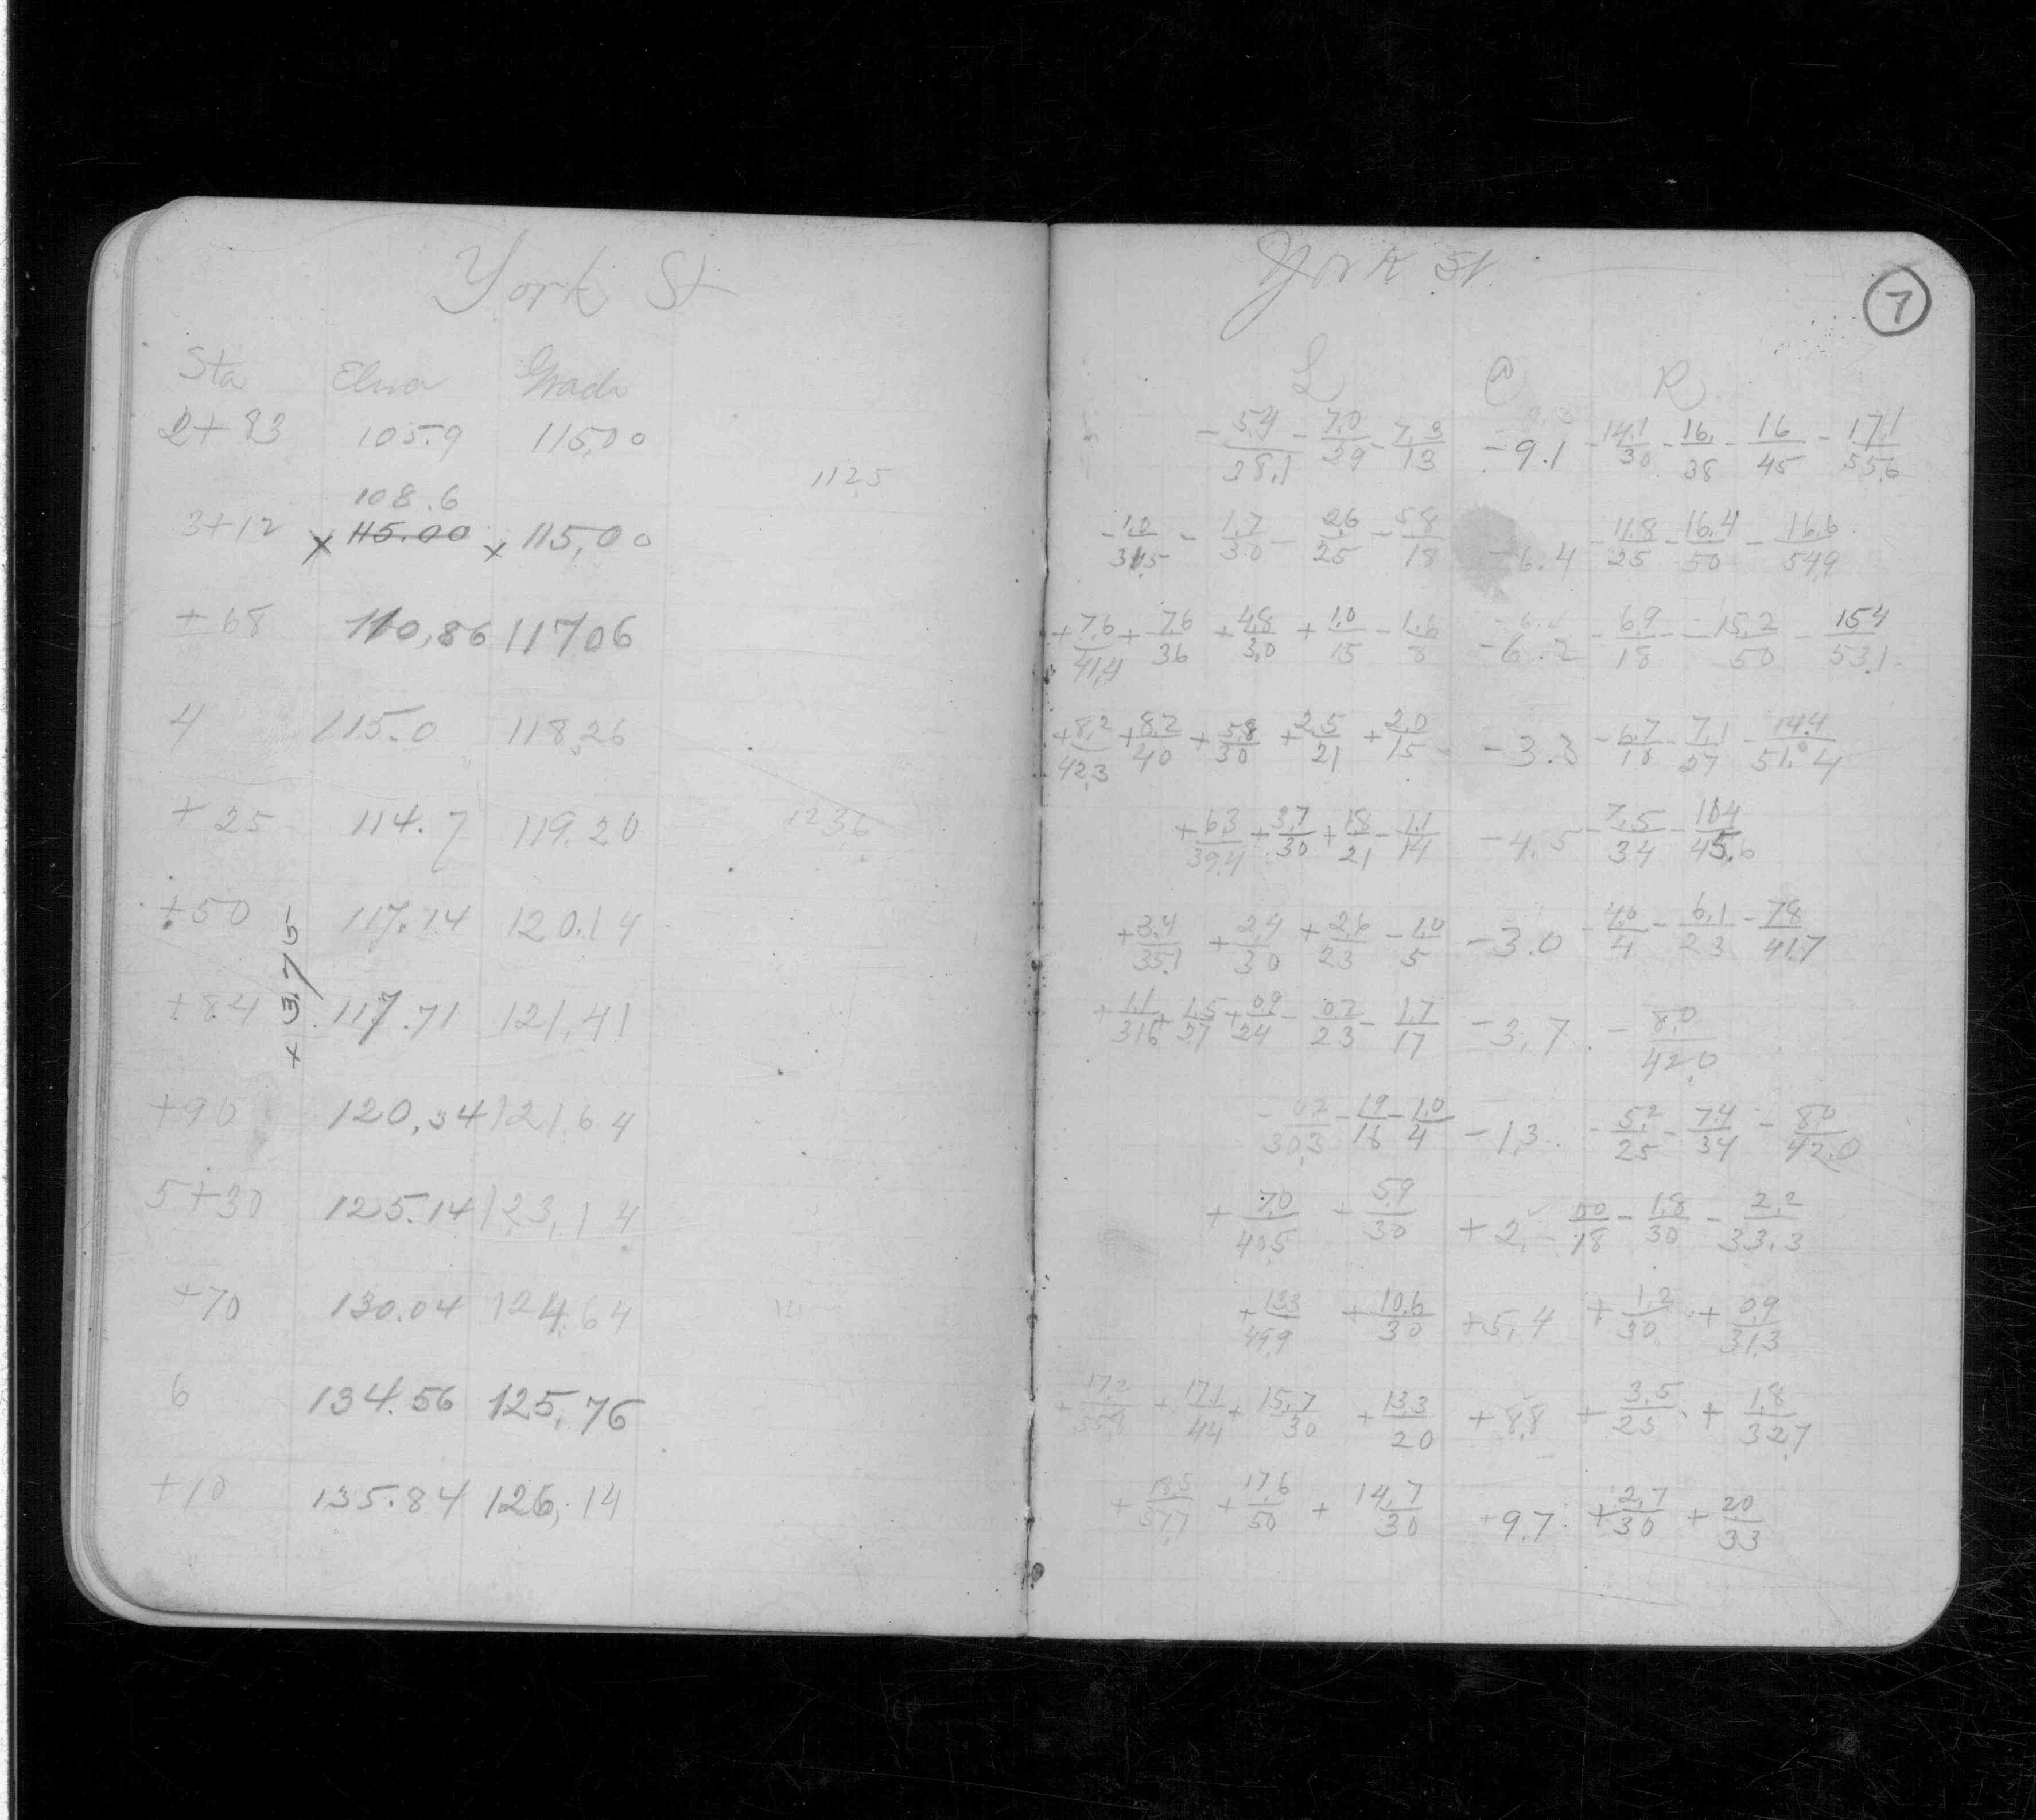 York St
Sta Elva Grade
2+83 105.9 115,00
1125
108.6
3+12 x 115.00 x 115,00
+68 110,86 117 06
4 115.0 118,26
+25 114.7 119.20
1236
+50 117.14 120.14
+3.75
+84 117.71 121.41
+90 120,34 121.64
5+30 125.14 123,14
+70 130.04 124.64
6 134.56 125,76
+10 135.84 126,14
York St.
7
L @ R
-5.9/38.1 -7.0/29 -7.3/13 -9.1 -14.1/30 -16./38 -16/45 -17.1/55.6
-1.0/31.5 -1.7/30 -2.6/25 -5.8/18 -6.4 -11.8/25 -16.4/50 -16.6/549
+7.6/41,4 +7.6/36 +4.8/3,0 +1.0/15 -1.6/8 -6.2 -6.9/18 -15.2/50 -154/53.1
+8.2/42,3 +8.2/40 +5.8/30 +2.5/21 +2.0/15 -3.3 -6.7/18 -7.1/27 -14.4/51.4
+63/39.4 +3.7/30 +1.8/21 -1.1/14 -4.5 -7.5/34 -104/45.6
+3.4/35.1 +2.4/30 +2.6/23 -1.0/5 -3.0 -4.0/4 -6.1/23 -78/41.7
+1.1/31.6 +1.5/27 +09/24 -02/23 -1.7/17 -3.7 -8.0/42.0
-02/30,3 -19/16 -1.0/4 -1.3 -5.2/25 -7.4/34 -80/42.0
+7.0/40.5 +5.9/30 +2. 00/18 -1.8/30 -2.2/33.3
+133/49.9 +10.6/30 +5.4 +1.2/30 +0.9/31.3
+17.2/55.8 +17.1/44 +15.7/30 +13.3/20 +8.8 +3.5/25 +1.8/32.7
+18.5/57.7 +17.6/50 +14.7/30 +9.7 +2.7/30 +20/33